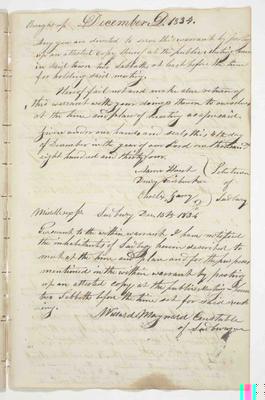 Brought up December D. 1834.
you are directed to serve this warrant by posting
up an attested copy thereof at the public meeting house
in said town two Sabbaths at least before the time
for holding said meeting.
Hereof fail not and make due return of
this warrant with your doings thereon to ourselves
at the time and place of meeting aforesaid.
Given under our hands and seals this day
of December in the year of our Lord one thousand
eight hundred and thirty four.
Selectmen
of
Sudbury
Middlesex ss Sudbury Dec 15th 1834
Pursuant to the within warrant I have notified
the inhabitants of Sudbury herein described to
meet at the time and place and for the purposes
mentioned in the within warrant by posting
up an attested copy at the public meeting house
two Sabbaths before the time set for said meet
ing.
Willard Maynard Constable
of Sudbury